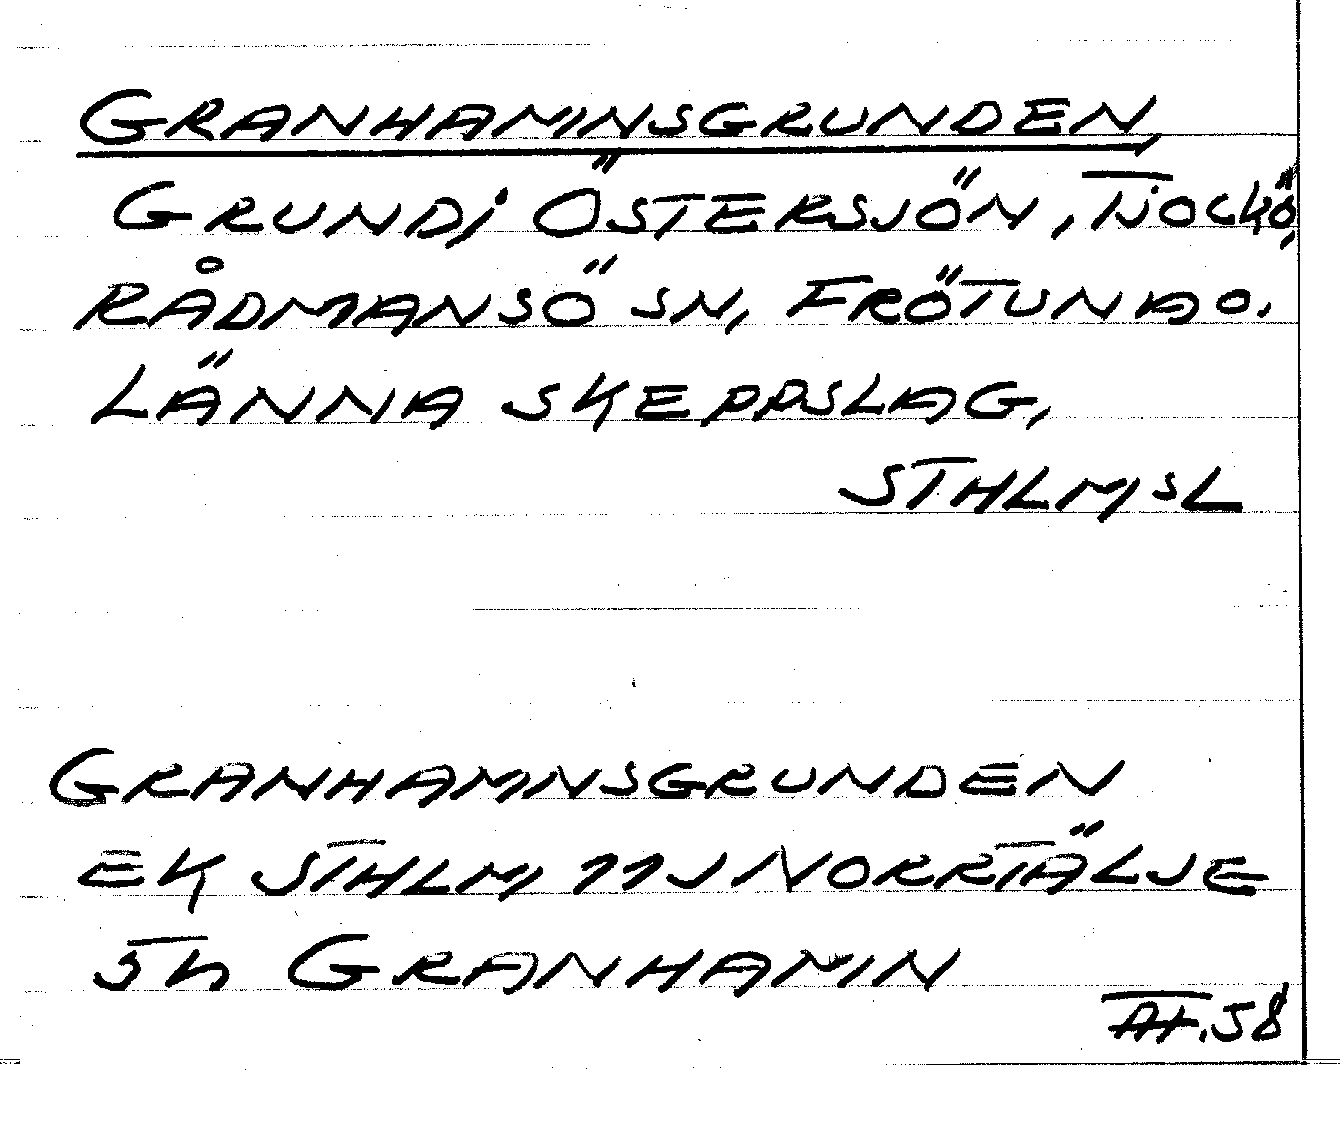 GRANHAMNSGRUNDEN,
GRUND I ÖSTERSJÖN, TJOCKÖ,
RÅDMANSÖ SN, FRÖTUNA O.
LÄNNA SKEPPSLAG,
STHLMS L
GRANHAMNSGRUNDEN
EK STHLM, 11J NORRTÄLJE
5h GRANHAMN